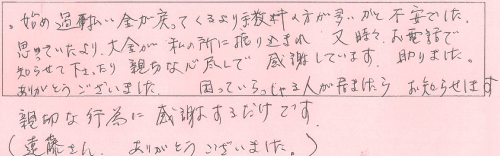 。始め過払い金が戻ってくるより手数料の方が多いかと不安でした。
思っていたより、大金が私の所に振り込まれ 又 時々お電話で
知らせて下さったり 親切な心尽しで 感謝しています。助りました。
ありがとうございました。 困っていらっしゃる人が居ましたら お知らせします
親切な行為に 感謝するだけです。
(遠藤さん、ありがとうございました。)